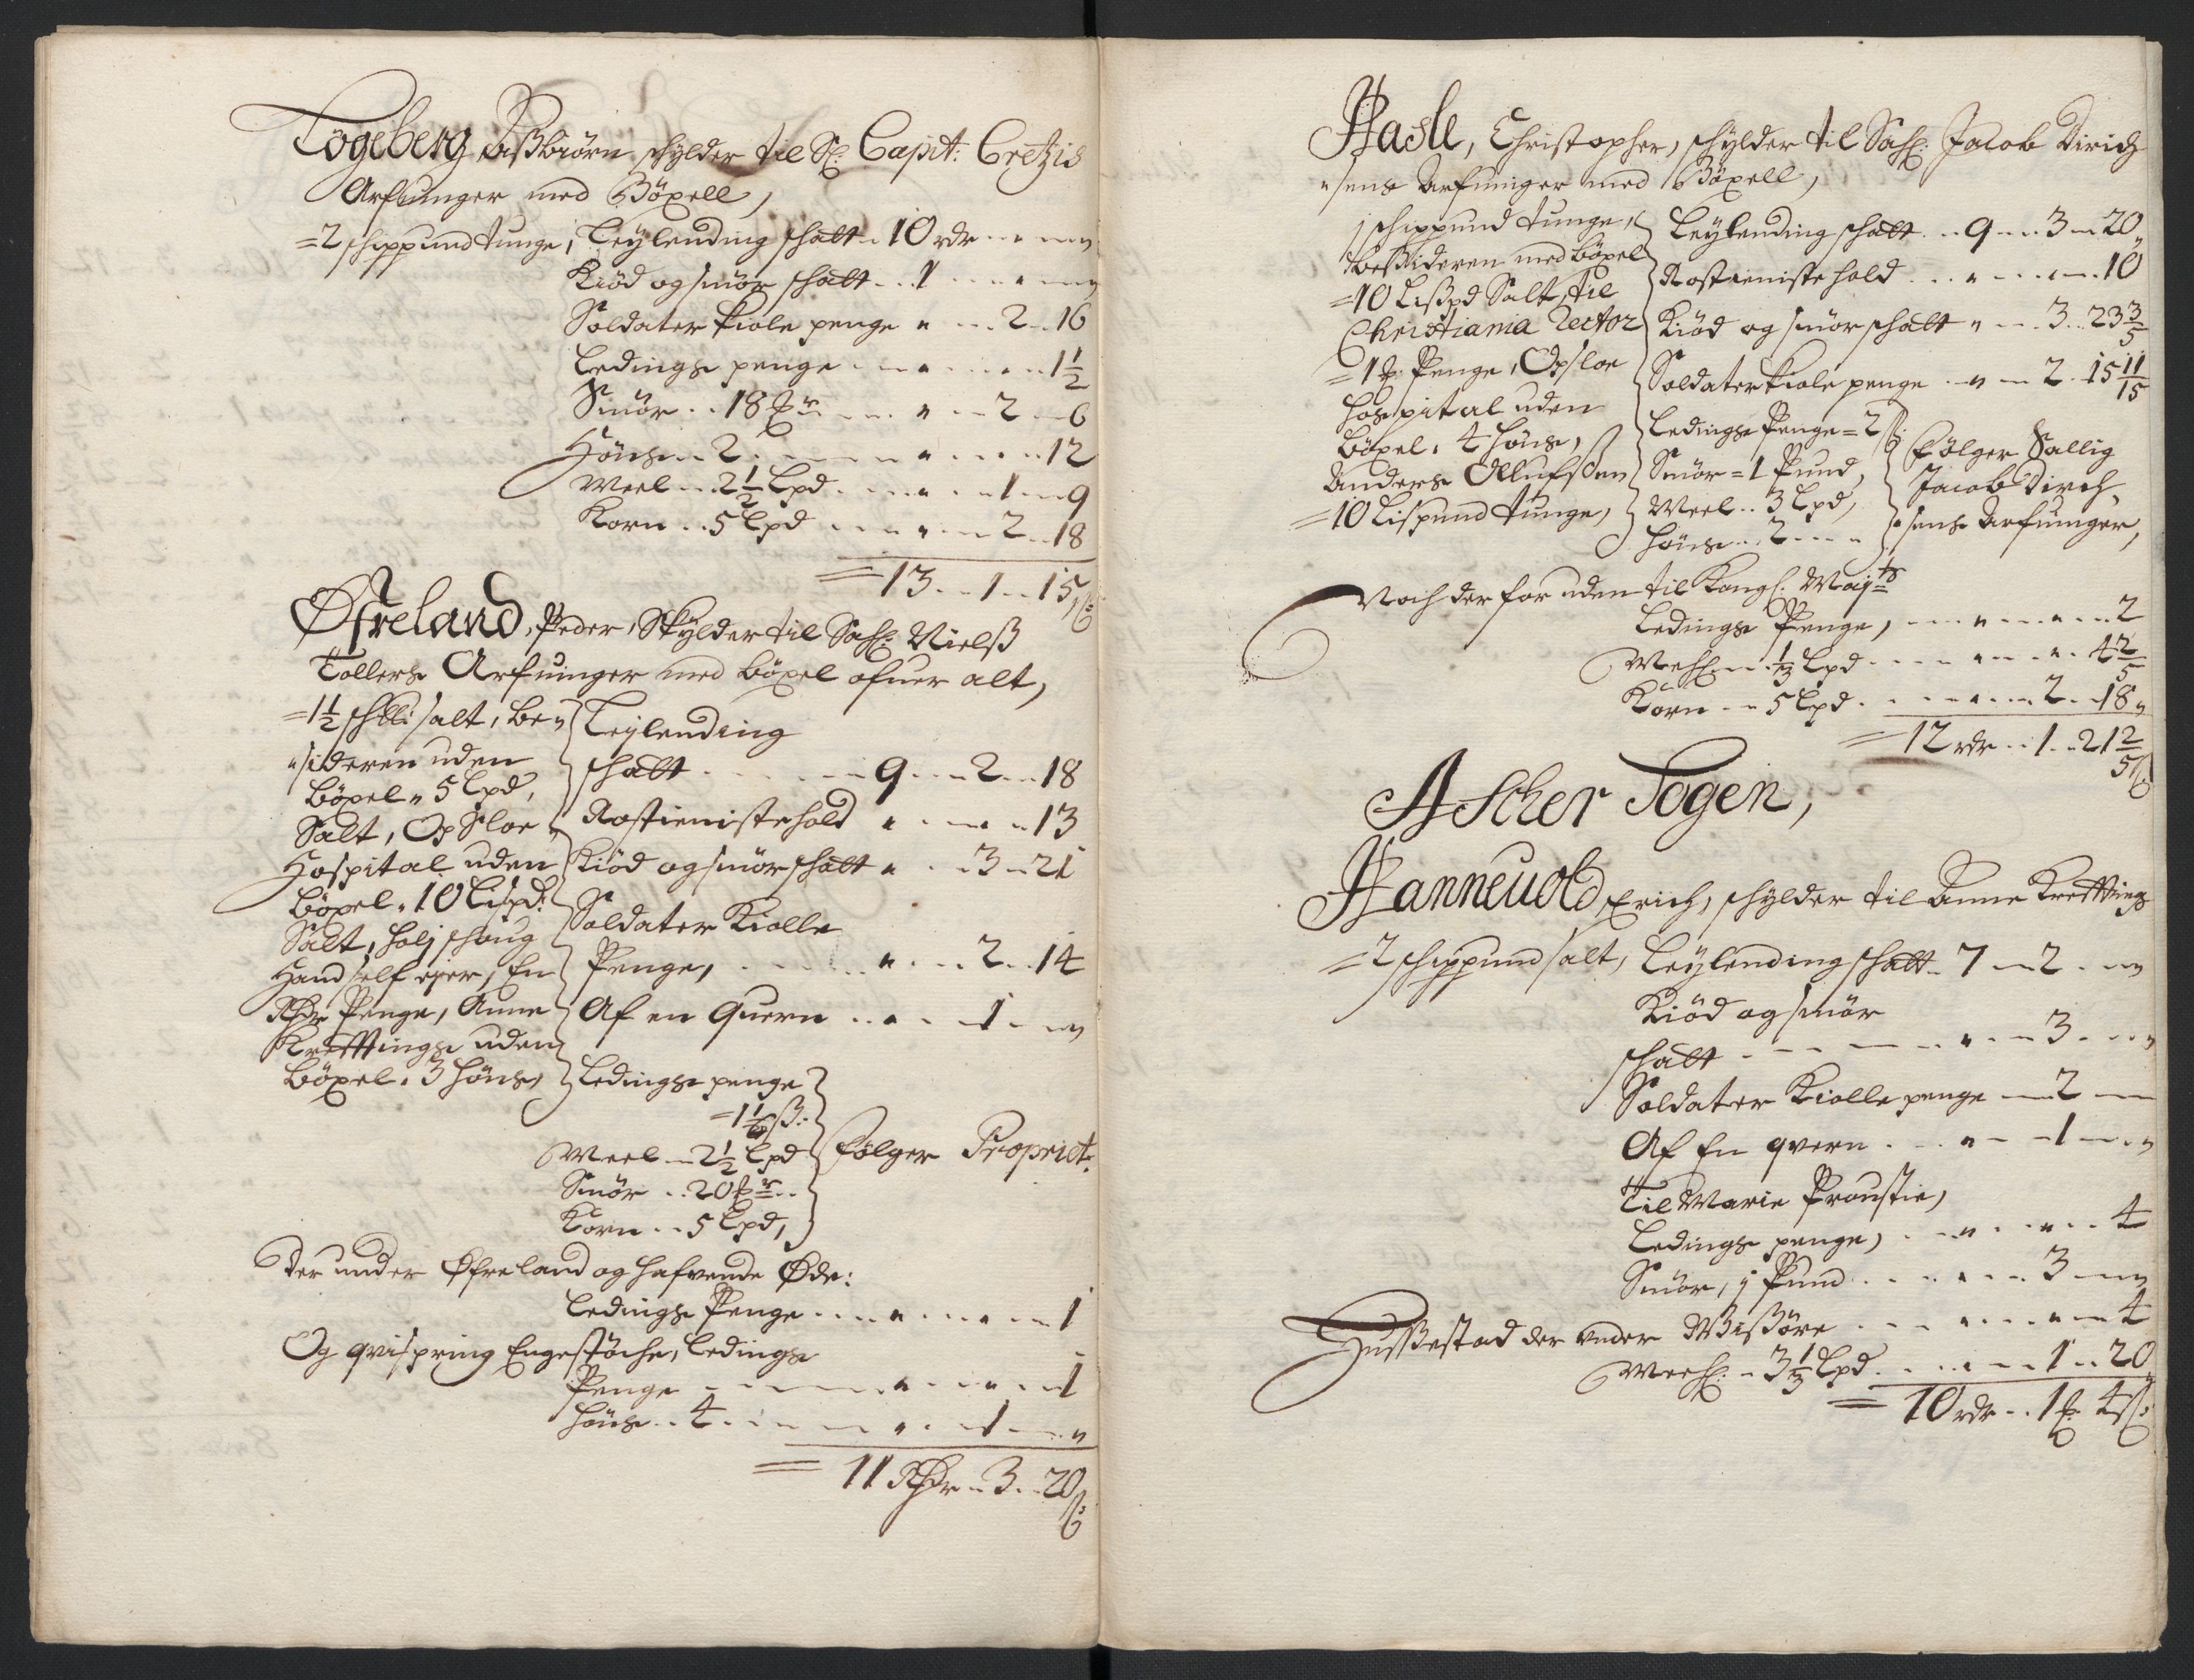 Togeberg Aßbiørn, schylder til Sl: Capit: Cretzis
Arfuinger med Böxell,
=2 schippund tunge, Leylending schatt - 10 rdr - - -
Kiöd og smör schatt - - 1 - - -
Soldater Kiole penge - - 2 - 16
Ledings penge - - - 1½
Smör - - 18 - - 2 - 6
Höns - 2 - - - 12
Meel - 2½ Lpd - - 1 - 9
Korn - 5 Lpd - - - 2 - 18
= 13 - 1 - 15 ß
Øfreland, Peder, Skylder til Sahl: Nielß
Tollers Arfuinger med böxel ofuer alt,
=1½ schlli salt, be-
sideren uden
böxel - 5 Lpd,
Salt, Opsloe
Hospital uden
böxel - 10 Lispd:
Salt, holj schoug
Hand self ejer, En
Rhdr Penge, Anne
Krefftings uden
böxel - 3 höns,
Leylending
schatt - - - 9 - 2 - 18
Rostienistehold - - - 13
Kiöd og smör schatt - - 3 - 21
Soldater Kiolle
Penge, - - - 2 - 14
Af en Quern - - - 1 - -
Ledings penge
=1½ ß:
Meel - 2½ Lpd
Smör - - 20
Korn - - 5 Lpd,
følger Propriet:
Der under Øfreland og hafvende Øde:
Ledings Penge - - - - 1
Og qvispring Engestöche, Ledings
Penge - - - - 1
höns - - 4 - - - 1 - -
= 11 Rhdr - 3 - 20 ß
Hasle, Christopher, schylder til Sahl: Jacob Dirich
sens Arfuinger med Böxell,
1 schippund tunge,
besideren med böxel
=10 Lißpd Salt, til
Christiania Rector
=1 Penge, Opsloe
Hospital uden
böxel, 4 höns,
Anders Ollufsen
=10 Lispund tunge,
Leylending schatt - 9 - - 3 - 20
Rostienistehold - - - - 10
Kiöd og smör schatt - - 3 - 23 3/5
Soldater Kiole penge - - 2 - 15 11/15
Ledings Penge = 2 ß:
Smör = 1 Pund,
Meel - 3 Lpd,
höns - 2 - - -
Følger Sallig
Jacob Dirch-
sens Arfuinger,
Noch der foruden til Kongl: Mayts
Ledings Penge, - - - - 2
Mehl - 1/3 Lpd - - - - 4 2/5
Korn - - 5 Lpd - - - 2 - 18
= 12 rdr - 1 - 21 2/5 ß
Ascher Sogen,
Hanneuold, Erich, schylder til Anne Krefftings
=2 schippund salt, Leylending schatt - 7 - 2 - -
Kiöd og smör
schatt - - - - 3 - -
Soldater Kiolle penge - 2 -
Af En qvern - - - 1 - -
Til Marie Proustie,
Ledings penge, - - - - 4
Smör, 1 Pund - - - 3 - -
Hußestad der under Wißöre - - - - 4
Meehl: - 3 1/3 Lpd - - - 1 - 20
= 10 rdr - 1 - 4 ß: